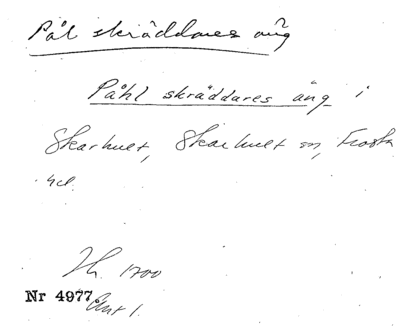 Pål skräddares äng
Påhl skräddares äng i
Skarhult, Skarhult sn, Frosta
hd.
Jh. 1700
Nr 4977. Akt 1.